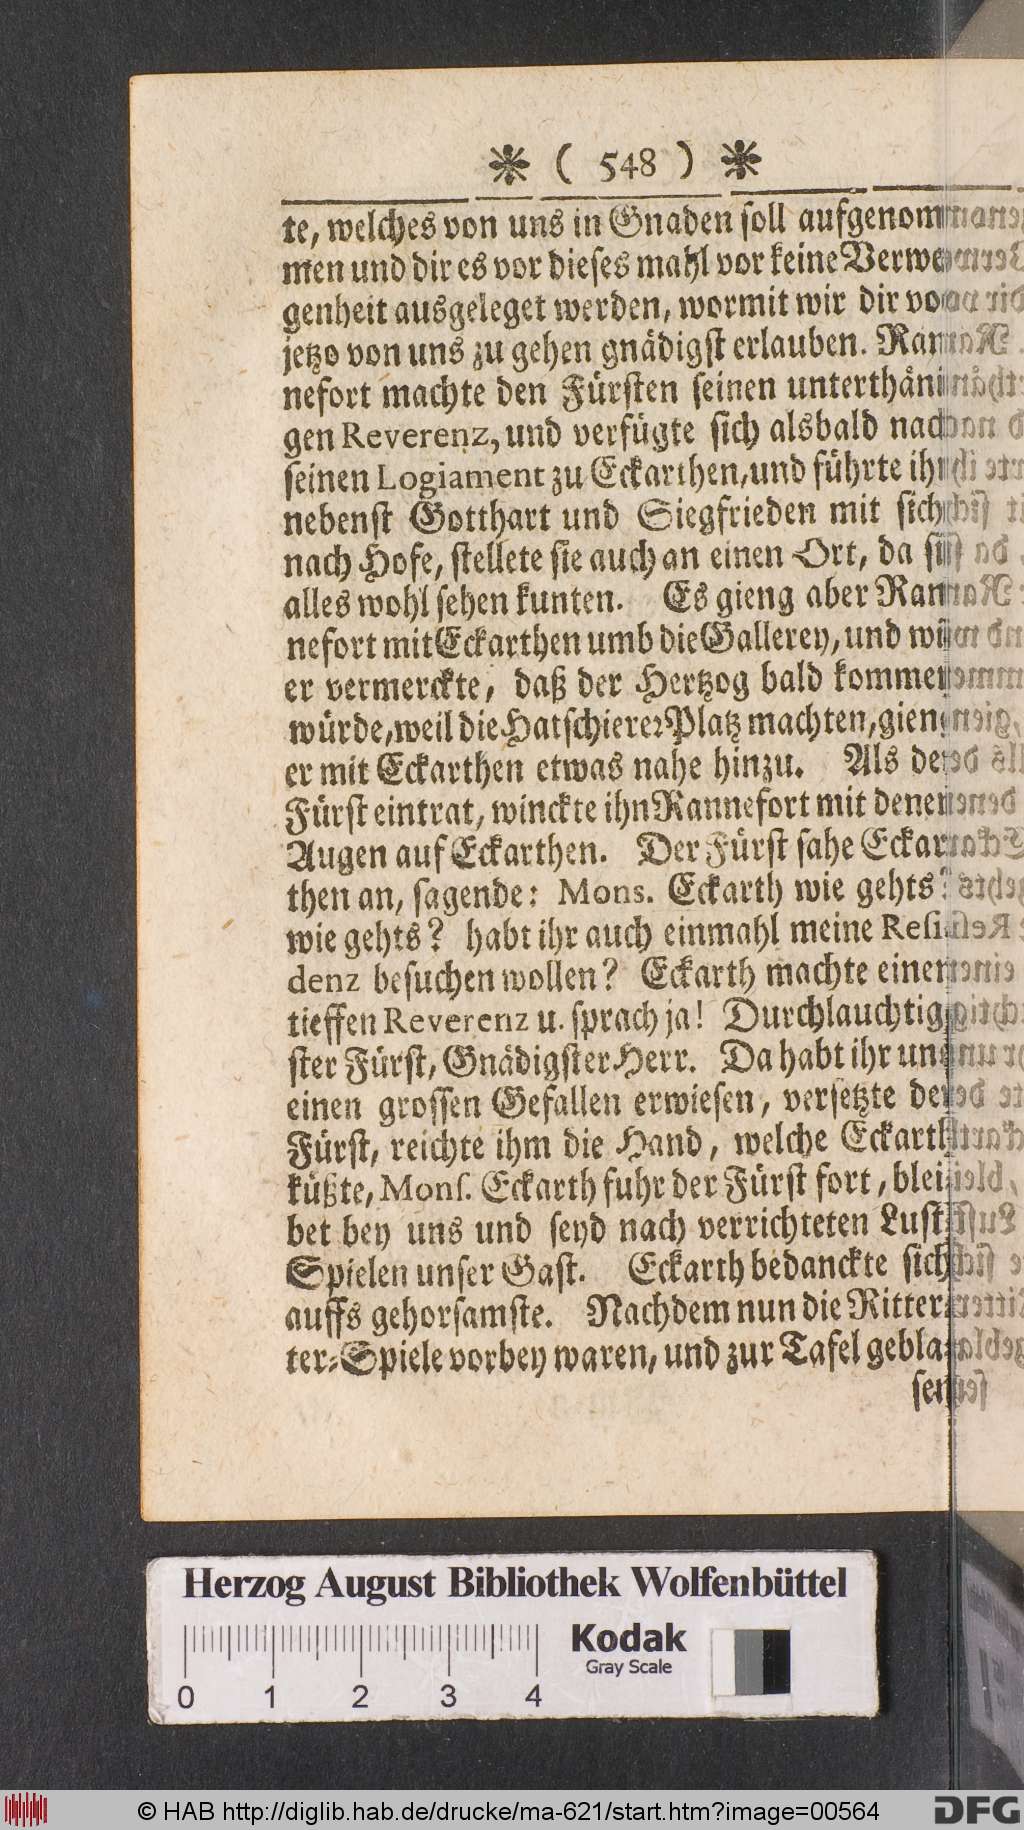 ❋ ( 548 ) ❋
te, welches von uns in Gnaden soll aufgenom⸗
men und dir es vor dieses mahl vor keine Verwe⸗
genheit ausgeleget werden, wormit wir dir vor
jetzo von uns zu gehen gnädigst erlauben. Ran⸗
nefort machte den Fürsten seinen unterthäni⸗
gen Reverenz, und verfügte sich alsbald nach
seinen Logiament zu Eckarthen, und führte ihn
nebenst Gotthart und Siegfrieden mit sich
nach Hofe, stellete sie auch an einen Ort, da sie
alles wohl sehen kunten. Es gieng aber Ran⸗
nefort mit Eckarthen umb die Gallerey, und wie
er vermerckte, daß der Hertzog bald kommen
würde, weil die Hatschierer Platz machten, gieng
er mit Eckarthen etwas nahe hinzu. Als der
Fürst eintrat, winckte ihn Rannefort mit denen
Augen auf Eckarthen. Der Fürst sahe Eckar⸗
then an, sagende: Mons. Eckarth wie gehts?
wie gehts? habt ihr auch einmahl meine Resi⸗
denz besuchen wollen? Eckarth machte einen
tieffen Reverenz u. sprach ja! Durchlauchtig⸗
ster Fürst, Gnädigster Herr. Da habt ihr uns
einen grossen Gefallen erwiesen, versetzte der
Fürst, reichte ihm die Hand, welche Eckarth
küßte, Mons. Eckarth fuhr der Fürst fort, blei⸗
bet bey uns und seyd nach verrichteten Lust⸗
Spielen unser Gast. Eckarth bedanckte sich
auffs gehorsamste. Nachdem nun die Ritter⸗
ter⸗Spiele vorbey waren, und zur Tafel gebla⸗
sen
Herzog August Bibliothek Wolfenbüttel
Kodak
Gray Scale
0 1 2 3 4
© HAB http://diglib.hab.de/drucke/ma-621/start.htm?image=00564
DFG